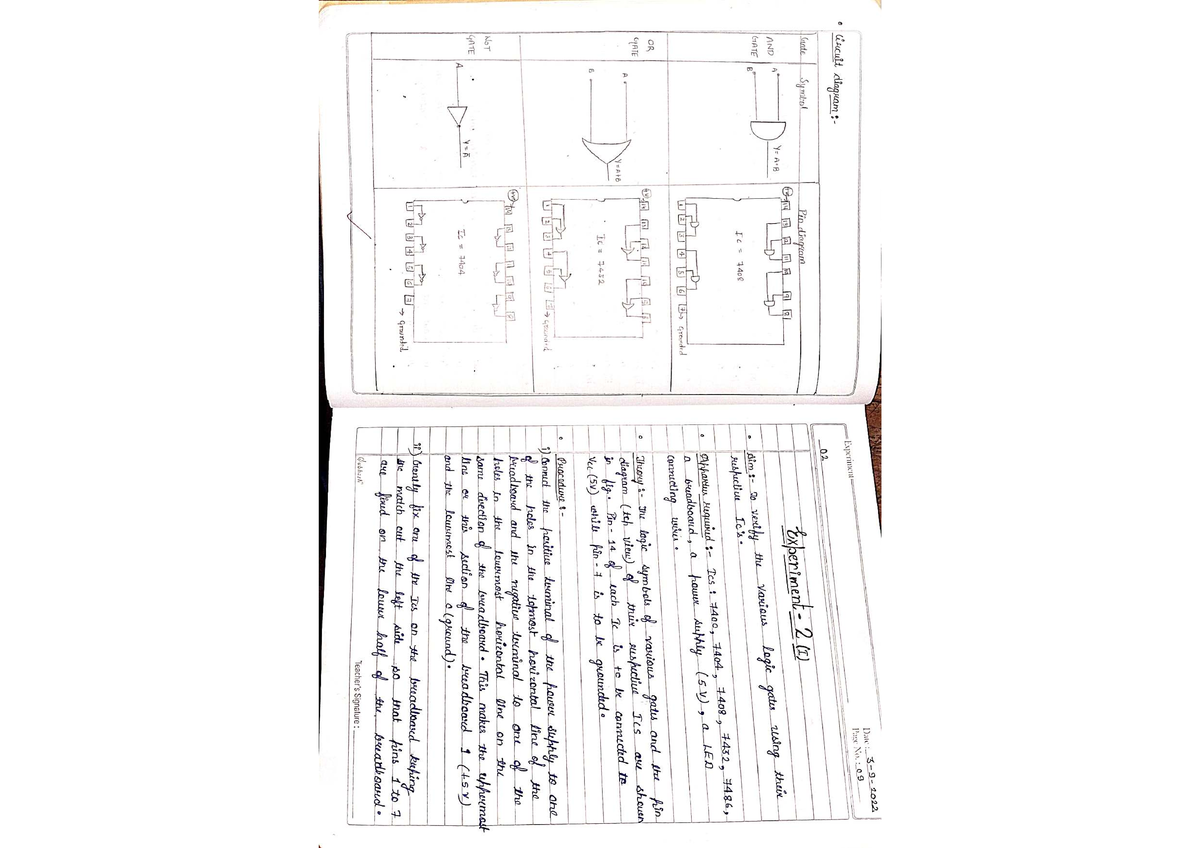 • Circuit diagram :-
Gate Symbol Pin diagram
AND
GATE
A
B
Y = A·B
5V
14 13 12 11 10 9 8
IC = 7408
1 2 3 4 5 6 7 → Grounded
OR
GATE
A
B
Y = A+B
5V
IC = 7432
1 2 3 4 5 6 7 → Grounded
NOT
GATE
A
Y = A̅
5V
IC = 7404
1 2 3 4 5 6 7
→ Grounded
Date :- 3-9-2022
Page No. :- 09
Experiment
02
Experiment - 2 (I)
• Aim :- To verify the various logic gates using their
respective Ic's.
• Apparatus required :- Ics : 7400, 7404, 7408, 7432, 7486,
a breadboard, a power supply (5 V), a LED
connecting wires.
• Theory :- The logic symbols of various gates and the pin
diagram (top view) of their respective ICs are shown
in fig. Pin - 14 of each Ic is to be connected to
Vcc (5V) while pin - 7 is to be grounded.
• Procedure :-
i) Connect the positive terminal of the power supply to one
of the holes in the topmost horizontal line of the
breadboard and the negative terminal to one of the
holes in the lowermost horizontal line on the
same direction of the breadboard. This makes the uppermost
line or this section of the breadboard 1 (+5V)
and the lowermost line 0 (ground).
ii) Gently fix one of the Ics on the breadboard keeping
the match cut the left side so that pins 1 to 7
are fixed on the lower half of the breadboard.
Teacher's Signature :